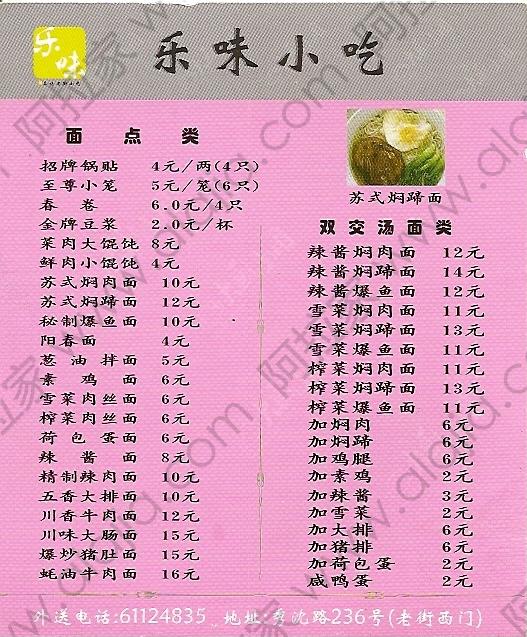 乐味
乐味小吃
面点类
招牌锅贴 4元/两(4只)
至尊小笼 5元/笼(6只)
春卷 6.0元/4只
金牌豆浆 2.0元/杯
菜肉大馄饨 8元
鲜肉小馄饨 4元
苏式焖肉面 10元
苏式焖蹄面 12元
秘制爆鱼面 10元
阳春面 4元
葱油拌面 5元
素鸡面 6元
雪菜肉丝面 6元
榨菜肉丝面 6元
荷包蛋面 6元
辣酱面 8元
精制辣肉面 10元
五香大排面 10元
川香牛肉面 12元
川味大肠面 15元
爆炒猪肚面 15元
蚝油牛肉面 16元
苏式焖蹄面
双交汤面类
辣酱焖肉面 12元
辣酱焖蹄面 14元
辣酱爆鱼面 12元
雪菜焖肉面 11元
雪菜焖蹄面 13元
雪菜爆鱼面 11元
榨菜焖肉面 11元
榨菜焖蹄面 13元
榨菜爆鱼面 11元
加焖肉 6元
加焖蹄 6元
加鸡腿 6元
加素鸡 2元
加辣酱 3元
加雪菜 2元
加大排 6元
加猪排 6元
加荷包蛋 2元
咸鸭蛋 2元
外送电话:61124835 地址:秀沈路236号(老街西门)
阿拉家 www.alajia.com